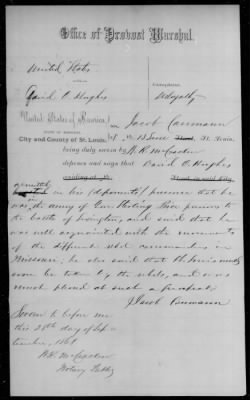 Office of Provost Marshal.
United States
David O. Hughes
Complaint,
Disloyalty
United States of America,
STATE OF MISSOURI,
City and County of St. Louis,
Jacob
of St. Louis
being duly sworn by
deposes and says that David O. Hughes
in his (deponents) presence that he
was in the army of Gen Sterling Price previous to
the battle of Lexington, and said that he
was well acquainted with the movements
of the different rebel commanders in
Missouri; he also said that St Louis would
soon be taken by the rebels, and was
much pleased at such a prospect.
Jacob
Sworn to before me
this 28th day of Sep
tember, 1861
Notary Public